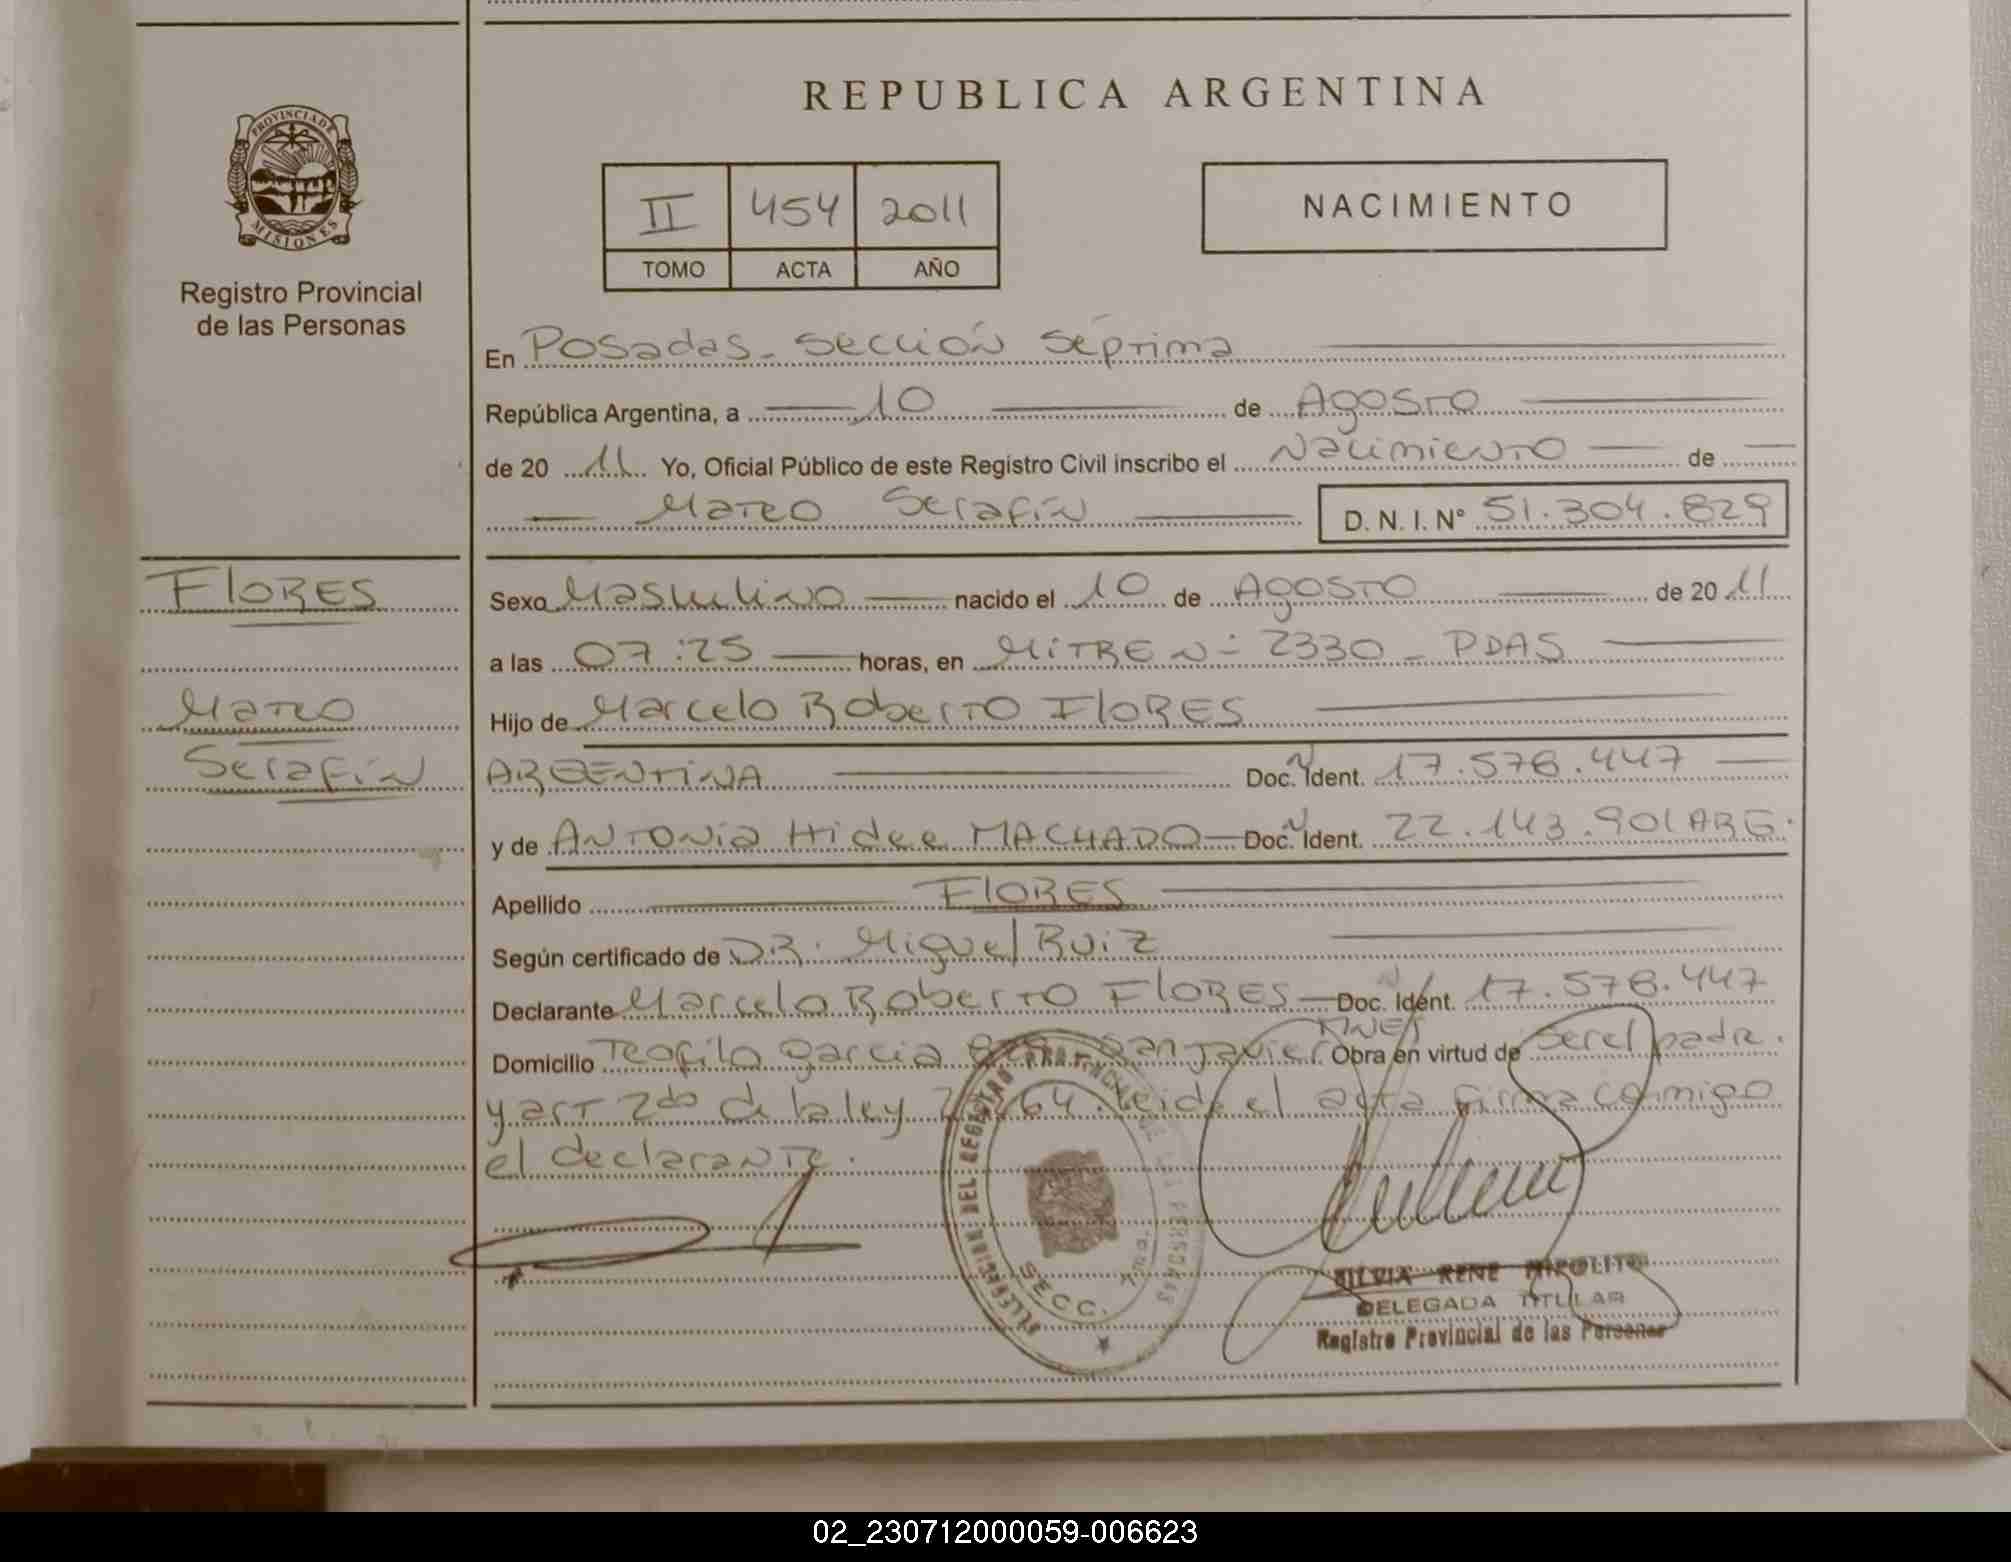 REPUBLICA ARGENTINA
PROVINCIA DE
MISIONES
Registro Provincial
de las Personas
II 454 2011
TOMO ACTA AÑO
NACIMIENTO
En Posadas - Sección Séptima
República Argentina, a 10 de Agosto
de 20 11 Yo, Oficial Público de este Registro Civil inscribo el Nacimiento de
Mateo Serafín D. N. I. N° 51.304.829
FLORES
Mateo
Serafín
Sexo Masculino nacido el 10 de Agosto de 20 11
a las 07:25 horas, en MITRE N° 2330 - PDAS
Hijo de Marcelo Roberto FLORES
ARGENTINA Doc. Ident. 17.576.447
y de ANTONIA Hidee MACHADO Doc. Ident. 22.143.901 ARG.
Apellido FLORES
Según certificado de DR. Miguel Ruiz
Declarante Marcelo Roberto FLORES Doc. Ident. 17.576.447
Domicilio Teofilo Garcia San Javier Mnes Obra en virtud de ser el padre.
y art 2do de la ley Leida el acta firma conmigo
el declarante.
DELEGACION DEL REGISTRO PROVINCIAL DE LAS PERSONAS
SECC. 7ma.
SILVIA RENE HIPOLITO
DELEGADA TITULAR
Registro Provincial de las Personas
02_230712000059-006623